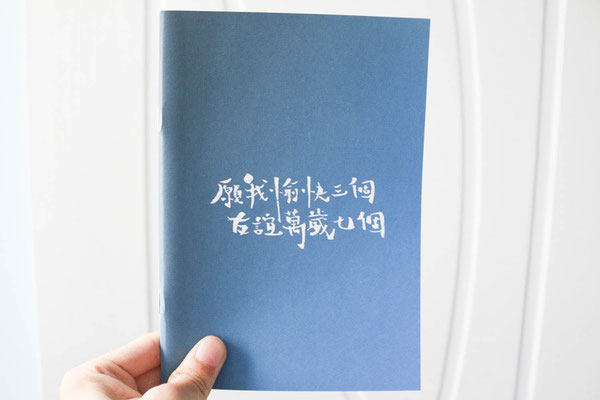 願我愉快三個
友誼萬歲七個